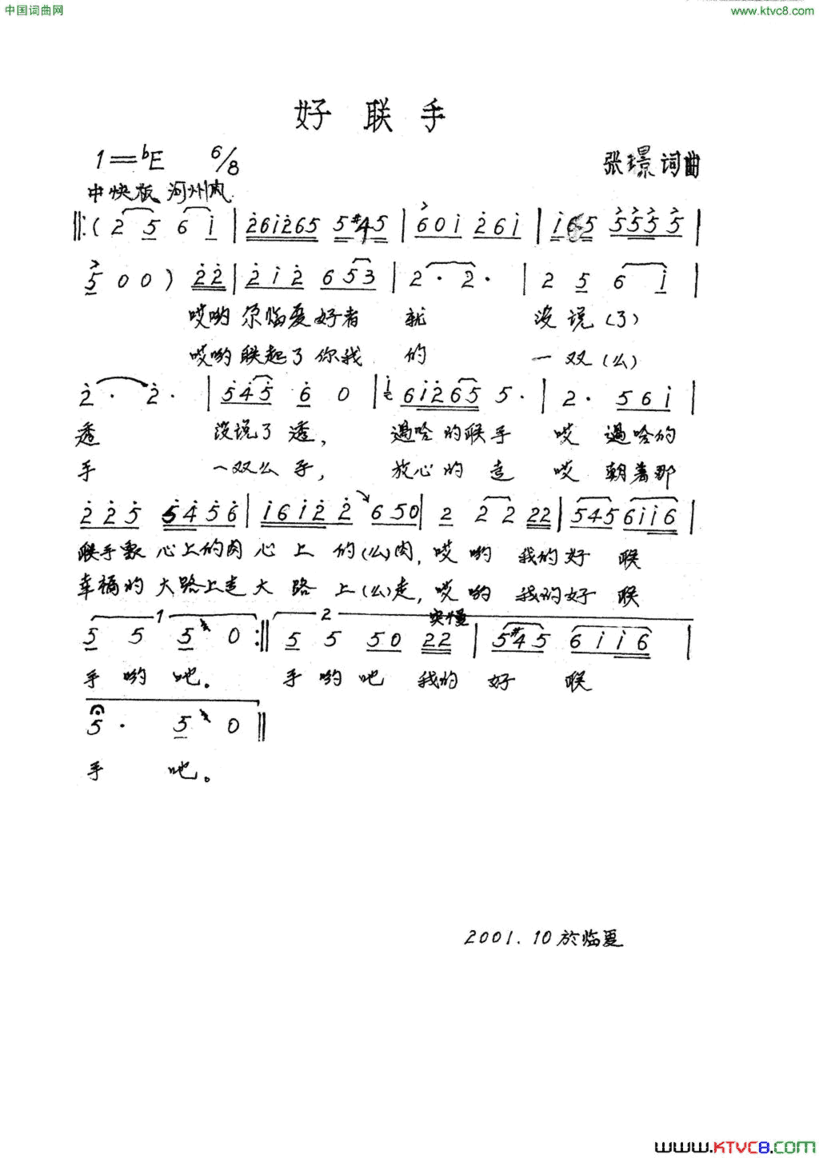 中国词曲网
www.ktvc8.com
好联手
1=bE 6/8
张璟 词曲
中快板 河州风
‖:( 2 5 6 i | 2 6 i 2 6 5 5 #4 5 | 6 0 i 2 6 i | i 6 5 5 5 5 5 |
5 0 0 ) 2 2 | 2 i 2 6 5 3 | 2 · 2 · | 2 5 6 i |
哎哟 尕临夏好者 就 没说(了)
哎哟联起了你我 的 一双(么)
2 · 2 · | 5 4 5 6 0 | 6 i 2 6 5 5 · | 2 · 5 6 i |
透 没说了透, 遇啥的联手 哎 遇啥的
手 一双么手, 放心的走 哎 朝着那
2 2 5 5 4 5 6 | i 6 i 2 2 6 5 0 | 2 2 2 2 2 | 5 4 5 6 i i 6 |
联手 心上的肉 心上的(么)肉, 哎哟 我的好联
幸福的大路上走大路上(么)走, 哎哟 我的好联
1 2 突慢
5 5 5 0 :‖ 5 5 5 0 2 2 | 5 #4 5 6 i i 6 |
手哟吔。 手哟吔 我的好联
5 · 5 0 ‖
手 吔。
2001.10於临夏
www.KTVC8.com